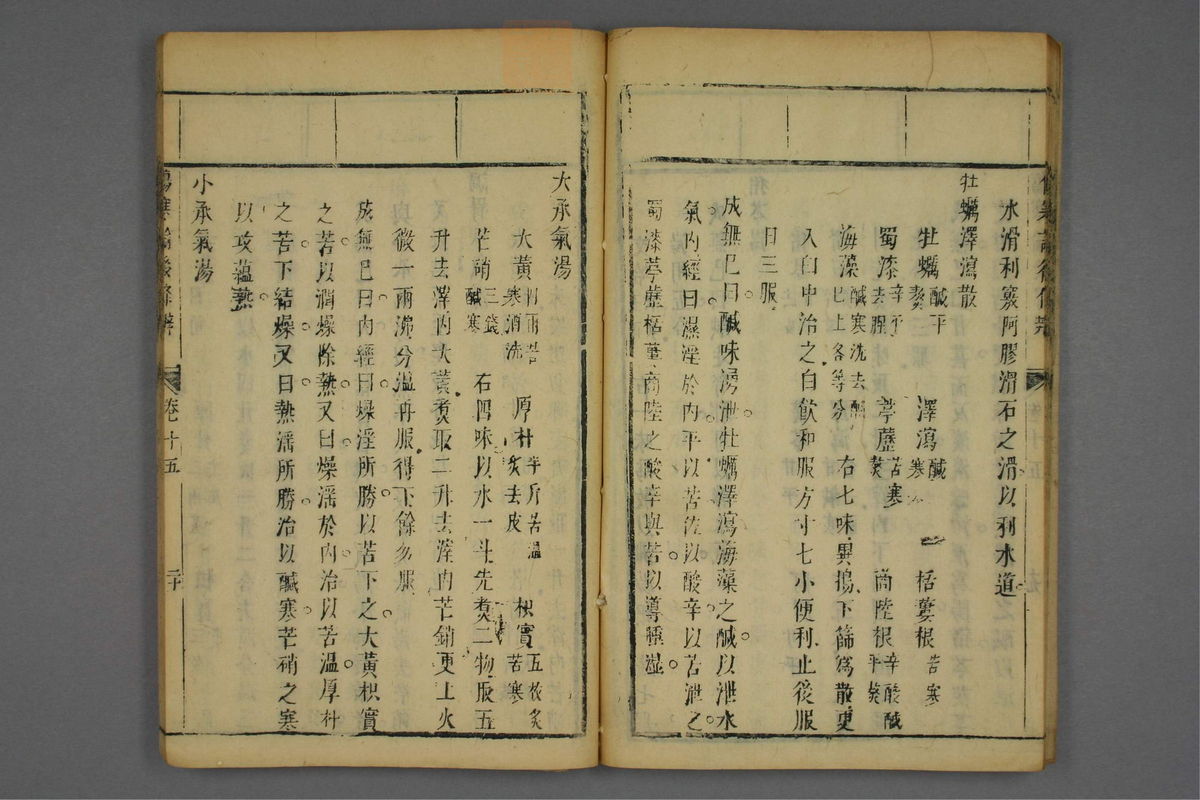 水滑利竅阿膠滑石之滑以利水道
牡蠣澤瀉散
牡蠣鹹平熬 澤瀉鹹寒 栝蔞根苦寒
蜀漆辛平去腥 葶藶苦寒熬 商陸根辛酸鹹平熬
海藻鹹寒洗去鹹已上各等分 右七味異搗下篩爲散更
入臼中治之白飲和服方寸七小便利止後服
日三服
成無已曰鹹味湧泄牡蠣澤瀉海藻之鹹以泄水
氣內經曰濕淫於內平以苦佐以酸辛以苦泄之
蜀漆葶藶栝蔞商陸之酸辛與苦以導腫濕
大承氣湯
大黃四兩苦寒酒洗 厚朴半斤苦溫炙去皮 枳實五枚炙苦寒
芒硝三錢鹹寒 右四味以水一斗先煑二物取五
升去滓內大黃煑取二升去滓內芒硝更上火
微一兩沸分溫再服得下餘勿服
成無已曰內經曰燥淫所勝以苦下之大黃枳實
之苦以潤燥除熱又曰燥淫於內治以苦溫厚朴
之苦下結燥又曰熱淫所勝治以鹹寒芒硝之寒
以攻蘊熱
小承氣湯
傷寒論後條辨 卷十五 二十